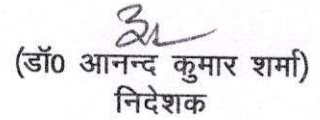 (डॉ0 आनन्द कुमार शर्मा)
निदेशक